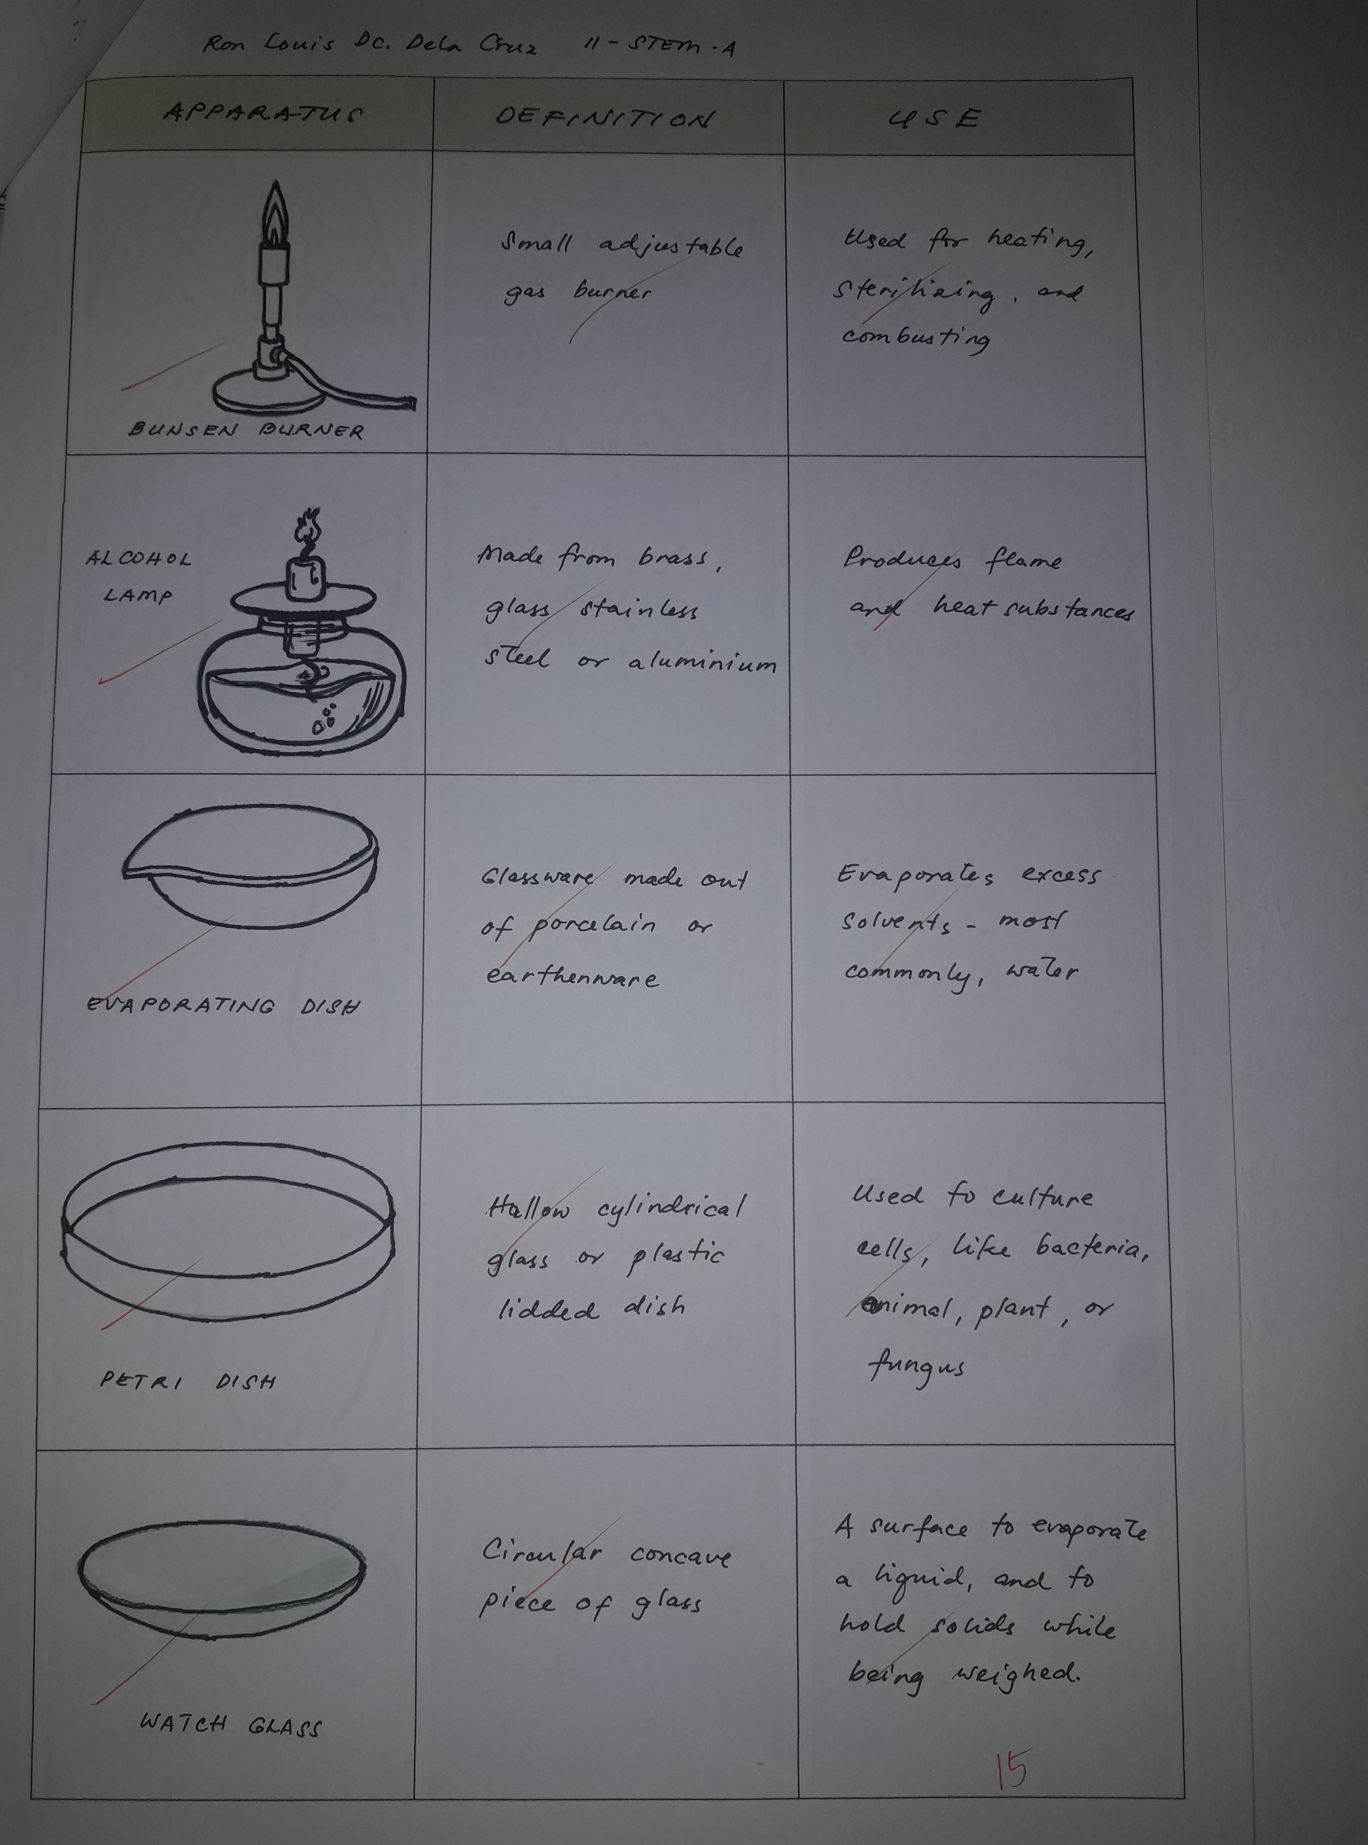 Ron Louis Dc. Dela Cruz 11-STEM-A
APPARATUS DEFINITION USE
Small adjustable
gas burner
Used for heating,
sterilizing, and
combusting
BUNSEN BURNER
ALCOHOL
LAMP
Made from brass,
glass stainless
steel or aluminium
Produces flame
and heat substances
Glassware made out
of porcelain or
earthenware
Evaporates excess
solvents - most
commonly, water
EVAPORATING DISH
Hallow cylindrical
glass or plastic
lidded dish
Used to culture
cells, like bacteria,
animal, plant, or
fungus
PETRI DISH
Circular concave
piece of glass
A surface to evaporate
a liquid, and to
hold solids while
being weighed.
WATCH GLASS
15